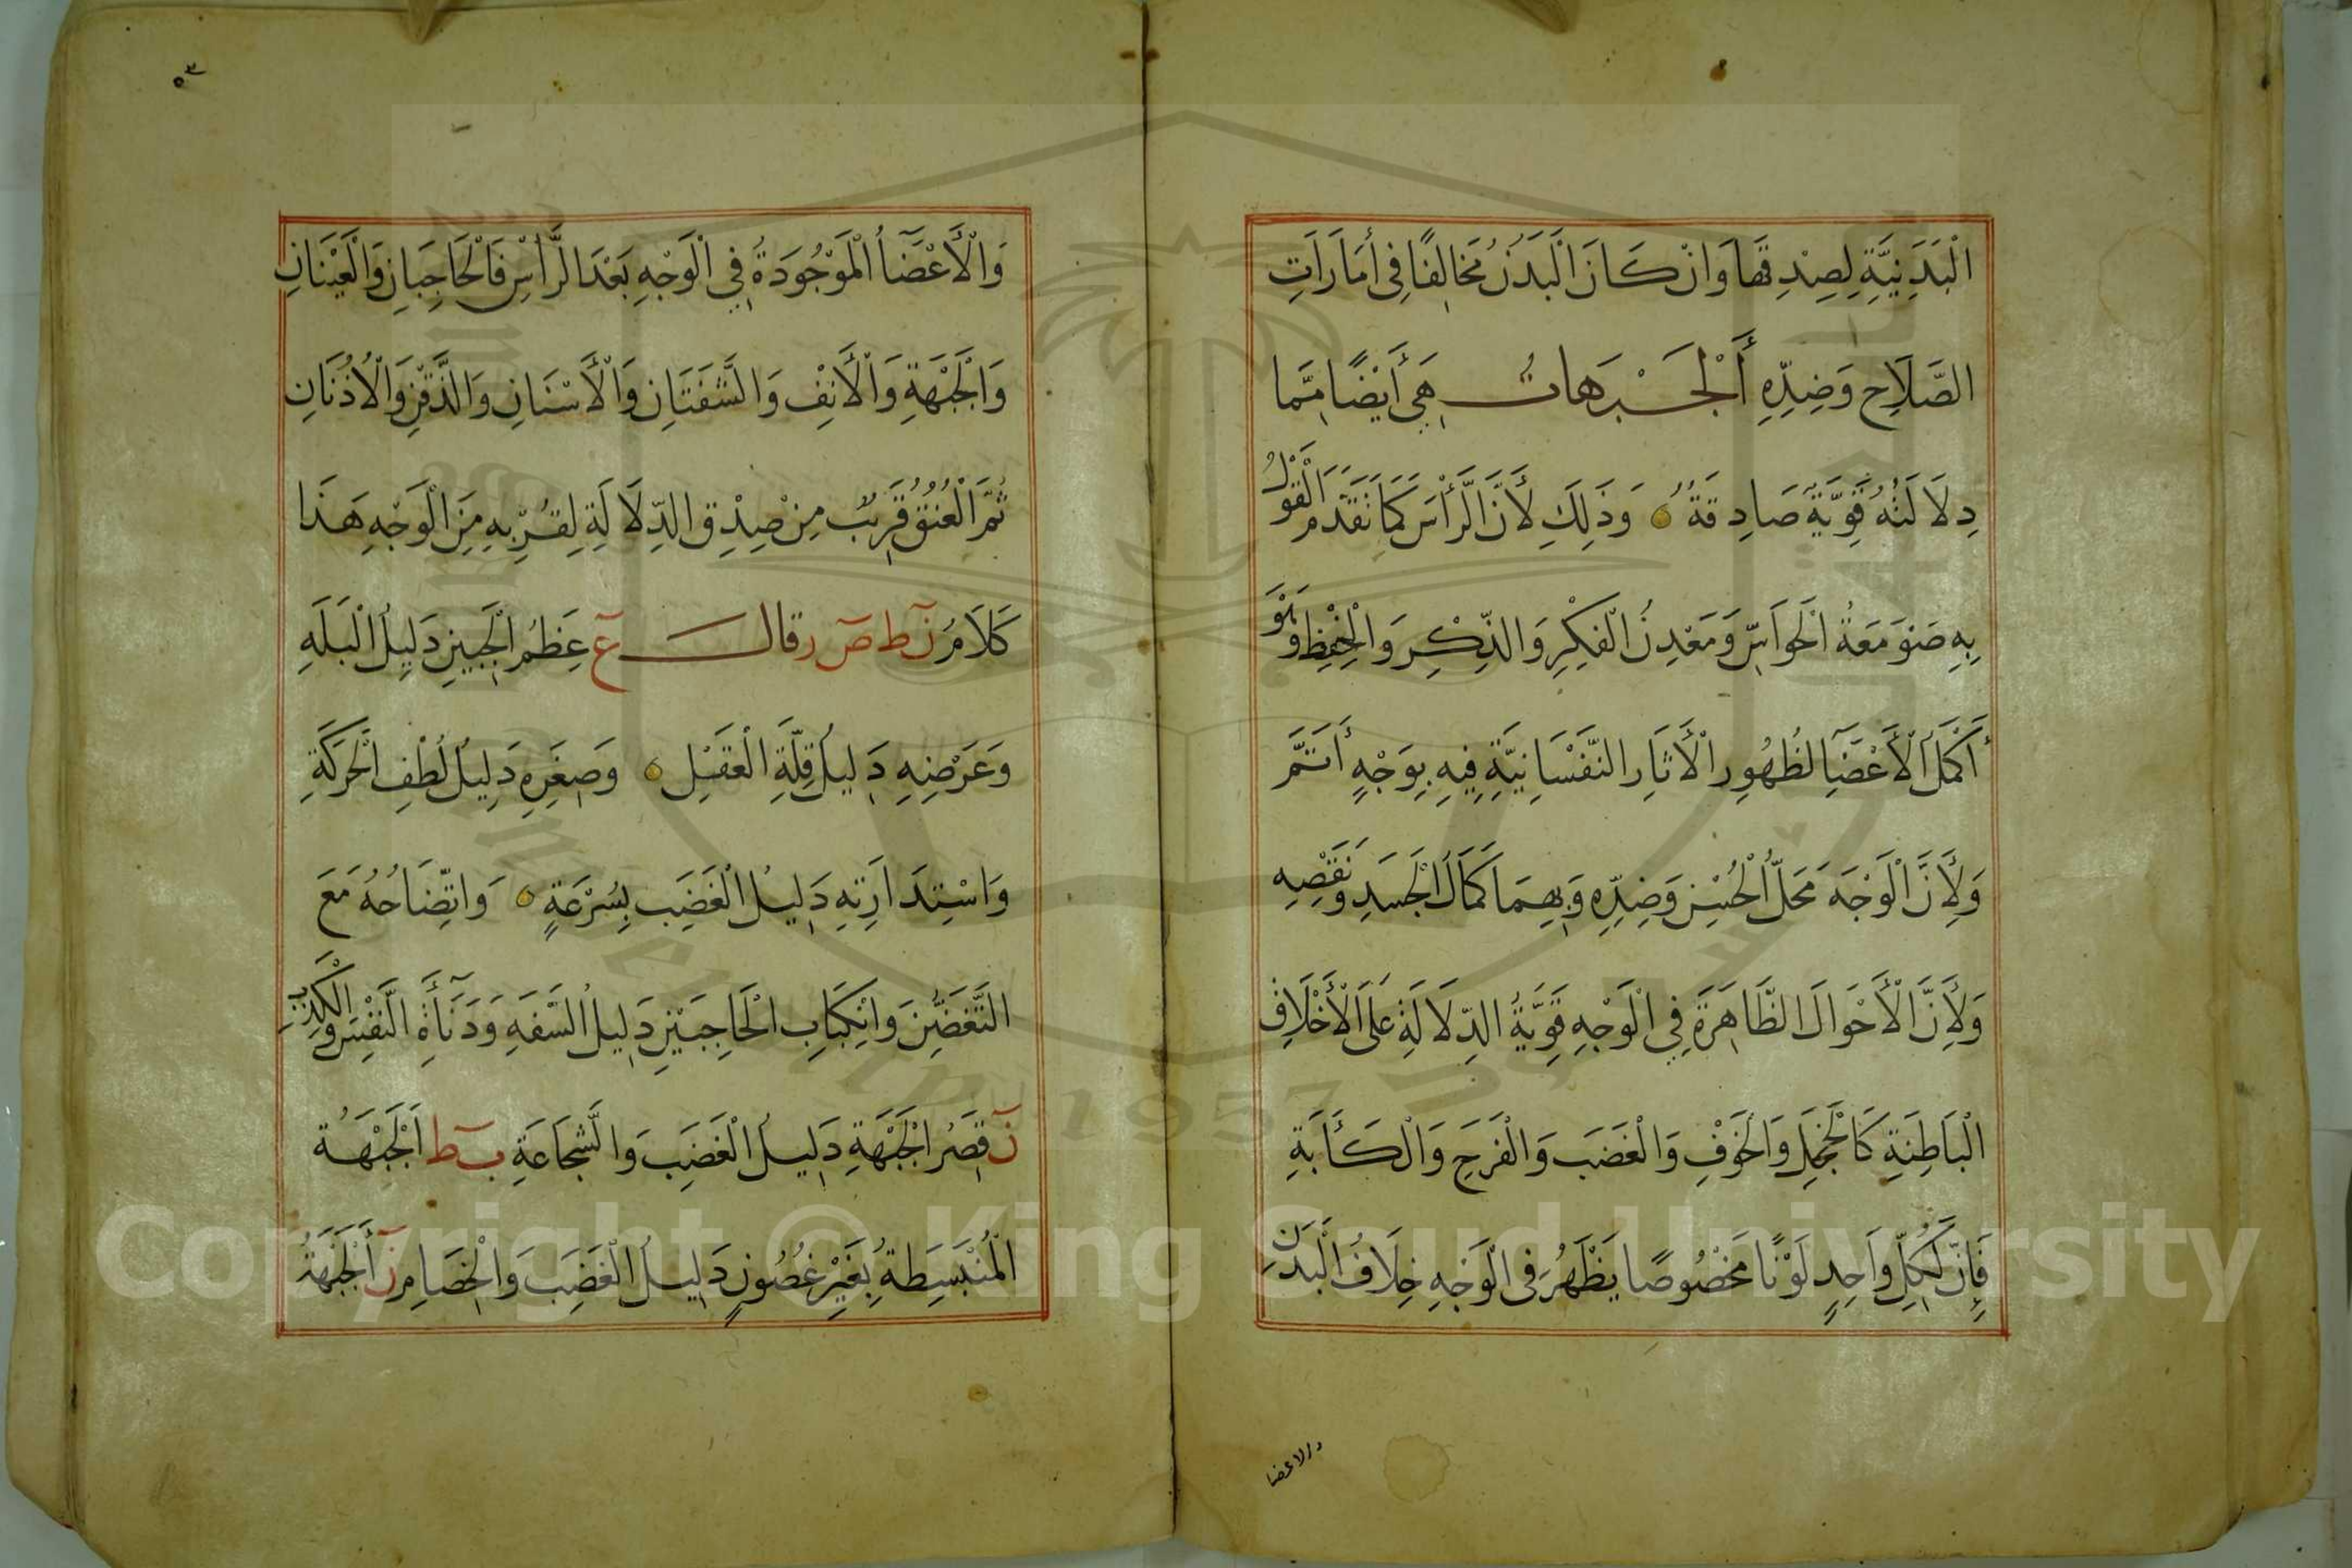 الْبَدَنِيَّةِ لِصِدْقِهَا وَانْ كَانَ الْبَدَنُ مُخَالِفًا فِي أَمَارَاتِ
الصَّلَاحِ وَضِدِّهِ أَلْجَبَهات هِيَ أَيْضًا مِمَّا
دِلَالَتُهُ قَوِيَّةٌ صَادِقَةٌ وَذَلِكَ لأَنَّ الرَّأْسَ كَمَا تَقَدَّمَ الْقَوْلُ
بِهِ صَوْمَعَةُ الْحَوَاسِّ وَمَعْدِنُ الْفِكْرِ وَالذِّكْرِ وَالْحِفْظِ وَهُوَ
أَكْمَلُ الْأَعْضَآ لظُهُورِ الْأثَارِ النَّفْسَانِيَّةِ فِيهِ بِوَجْهٍ أَتَمَّ
وَلِأَنَّ الْوَجْهَ مَحَلُّ الْحُسْنِ وَضِدِّهِ وَبِهِمَا كَمَالُ الْجَسَدِ وَنَقْصِهِ
وَلِأَنَّ الْأَحْوَالَ الظَّاهِرَةَ فِي الْوَجْهِ قَوِيَّةُ الدِّلَالَةِ عَلَى الْأَخْلَاقِ
الْبَاطِنَةِ كَالْخَجَلِ وَالْخَوْفِ وَالْغَضَبِ وَالْفَرَحِ وَالْكَأَبَةِ
فَإِنَّ لِكُلِّ وَاحِدٍ لَوْنًا مَخْصُوصًا يَظْهَرُ فِي الْوَجْهِ خِلَافُ الْبَدَنِ
والاعضا
٥٣
وَالْأَعْضَآُ الْمَوْجُودَةُ فِي الْوَجْهِ بَعْدَ الرَّأْسِ فَالْحَاجِبَانِ وَالْعَيْنَانِ
وَالْجَبْهَةِ وَالْأَنْفِ وَالشَّفَتَانِ وَالْأَسْنَانِ وَالذَّقْنِ وَالْأُذُنَانِ
ثُمَّ الْعُنُقُ قَرِيبٌ مِنْ صِدْقِ الدِّلَالَةِ لِقُرْبِهِ مِنَ الْوَجْهِ هَذَا
كَلَامُ نَ ط صَ ر قال عَ عِظَمُ الْجَبِينِ دَلِيلُ الْبَلَهِ
وَعَرْضِهِ دَلِيلُ قِلَّةِ الْعَقْلِ وَصِغَرِهِ دَلِيلُ لُطْفِ الْحَرَكَةِ
وَاسْتِدَارَتِهِ دَلِيلُ الْغَضَبِ بِسُرْعَةٍ وَاتِّضَاحُهُ مَعَ
التَّغَضُّنَ وَانْكِبَابِ الْحَاجِبَيْنِ دَلِيلُ السَّفَهِ وَدَنَآأَةِ النَّفْسِ وَالْكَذِبِ
نَ قِصَرُ الْجَبْهَةِ دَلِيلُ الْغَضَبِ وَالشَّجَاعَةِ بَ ط اَلْجَبْهَةُ
الْمُنْبَسِطَةُ بِغَيْرِ غُصُونٍ دَلِيلُ الْغَضَبِ وَالْخِصَامِ نَ أَلْجَبَهَةُ
Copyright © King Saud University
1957